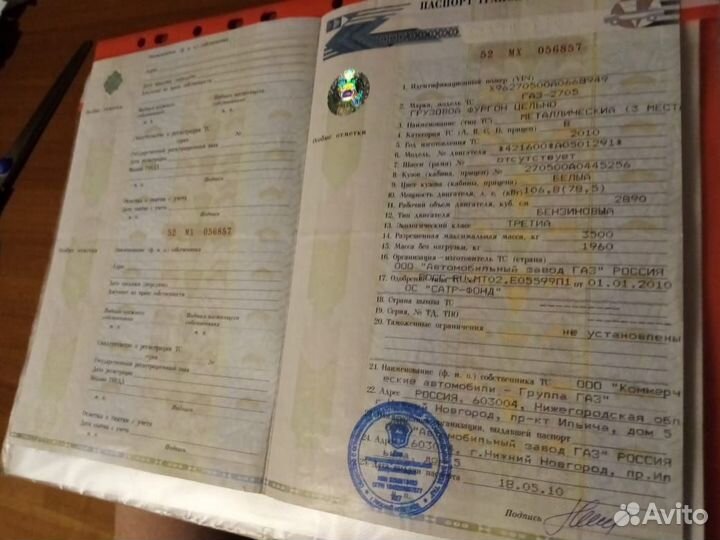 Наименование (ф. и. о.) собственника
Адрес
Особые отметки
Подпись прежнего собственника
Подпись настоящего собственника
м. п.
м. п.
Свидетельство о регистрации ТС
серия
№
Государственный регистрационный знак
Дата регистрации
Выдано ГИБДД
м. п.
Подпись
Отметка о снятии с учета
Дата снятия с учета
м. п.
Подпись
52 МХ 056857
Особые отметки
Наименование (ф. и. о.) собственника
Адрес
Дата продажи (передачи)
Документ на право собственности
Подпись прежнего собственника
Подпись настоящего собственника
м. п.
м. п.
Свидетельство о регистрации ТС
серия
№
Государственный регистрационный знак
Дата регистрации
Выдано ГИБДД
м. п.
Подпись
Отметка о снятии с учета
Дата снятия с учета
м. п.
Подпись
ПАСПОРТ ТРАНС
52 МХ 056857
Особые отметки
1. Идентификационный номер (VIN)
X96270500A0668949
2. Марка, модель ТС ГАЗ-2705
ГРУЗОВОЙ ФУРГОН ЦЕЛЬНО
3. Наименование (тип ТС) МЕТАЛЛИЧЕСКИЙ (3 МЕСТА
4. Категория ТС (А, В, С, D, прицеп) B
5. Год изготовления ТС 2010
6. Модель, № двигателя *421600*A0501291*
7. Шасси (рама) № отсутствует
8. Кузов (кабина, прицеп) № 270500A0445256
9. Цвет кузова (кабины, прицепа) БЕЛЫЙ
10. Мощность двигателя, л. с. (кВт) 106,8(78,5)
11. Рабочий объем двигателя, куб. см 2890
12. Тип двигателя БЕНЗИНОВЫЙ
13. Экологический класс ТРЕТИЙ
14. Разрешенная максимальная масса, кг 3500
15. Масса без нагрузки, кг 1960
16. Организация – изготовитель ТС (страна)
ООО "Автомобильный завод ГАЗ" РОССИЯ
17. Одобрение типа ТС № РОСС RU.MT02.E05599П1 от 01.01.2010
ОС "САТР-ФОНД"
18. Страна вывоза ТС
19. Серия, № ТД, ТПО
20. Таможенные ограничения
не установлены
21. Наименование (ф. и. о.) собственника ТС ООО "Коммерч
еские автомобили - Группа ГАЗ"
22. Адрес РОССИЯ, 603004, Нижегородская обл
г.Нижний Новгород, пр-кт Ильича, дом 5
организации, выдавшей паспорт
"Автомобильный завод ГАЗ" РОССИЯ
24. Адрес 603004, г.Нижний Новгород, пр.Ил
дом 5
паспорта
18.05.10
Подпись
Avito